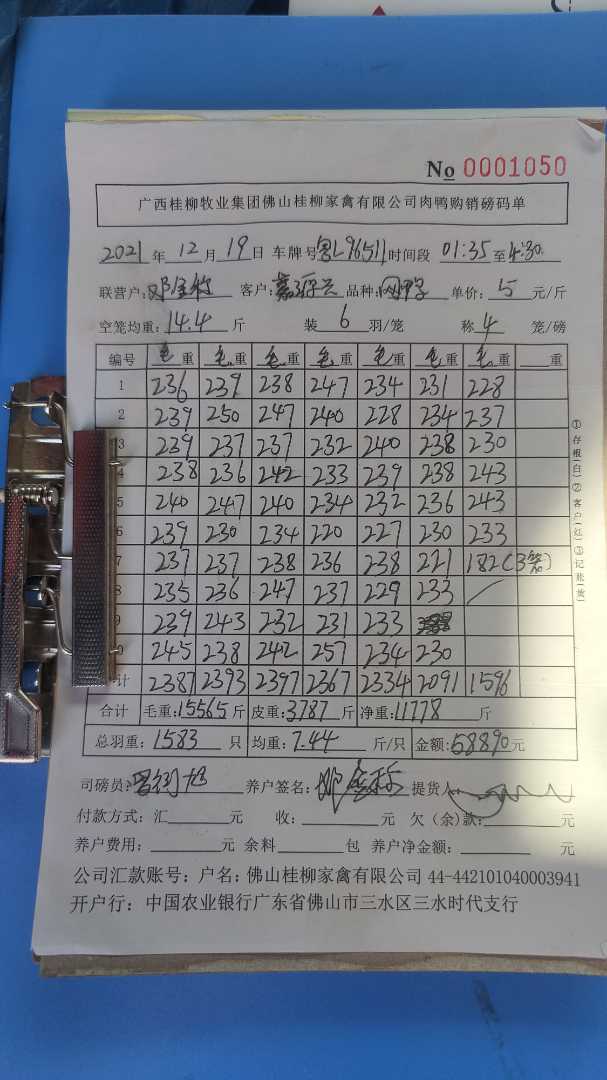 No 0001050
广西桂柳牧业集团佛山桂柳家禽有限公司肉鸭购销磅码单
2021年12月19日 车牌号粤L96511时间段 01:35至4:30
联营户: 客户: 品种: 单价: 5 元/斤
空笼均重: 14.4 斤 装 6 羽/笼 称 4 笼/磅
编号 毛重 毛重 毛重 毛重 毛重 毛重 毛重 重
1 236 239 238 247 234 231 228
2 239 250 247 240 228 234 237
3 239 237 237 232 240 238 230
4 238 236 242 233 239 238 243
5 240 247 240 234 232 236 243
6 239 230 234 220 227 230 233
7 237 237 238 236 238 221 182(3笼)
8 235 236 247 237 229 233
9 239 243 232 231 233
0 245 238 242 257 234 230
计 2387 2393 2397 2367 2334 2091 1596
合计 毛重:15565斤 皮重:3787斤 净重:11778 斤
总羽重: 1583 只 均重: 7.44 斤/只 金额: 58890元
司磅员: 养户签名: 提货人:
付款方式: 汇 元 收: 元 欠(余)款: 元
养户费用: 元 余料 包 养户净金额: 元
公司汇款账号: 户名: 佛山桂柳家禽有限公司 44-442101040003941
开户行: 中国农业银行广东省佛山市三水区三水时代支行
①存根(白)②客户(红)③记账(黄)